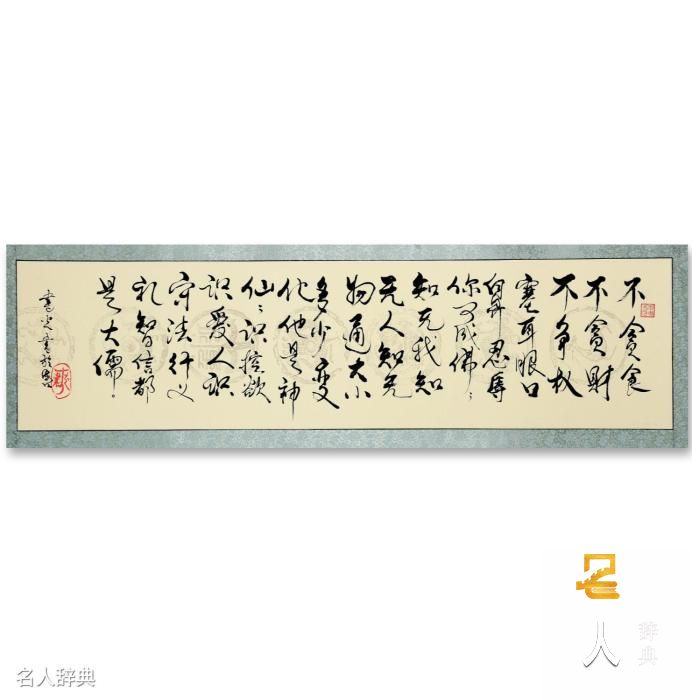 不貪食
不貪財
不争权
塞耳眼口
鼻忍辱
你可成佛〻
知无我知
无人知无
物通大小
多少变
化他是神
仙〻识控欲
识爱人识
守法行义
礼智信都
是大儒！
名人辞典
名人辞典